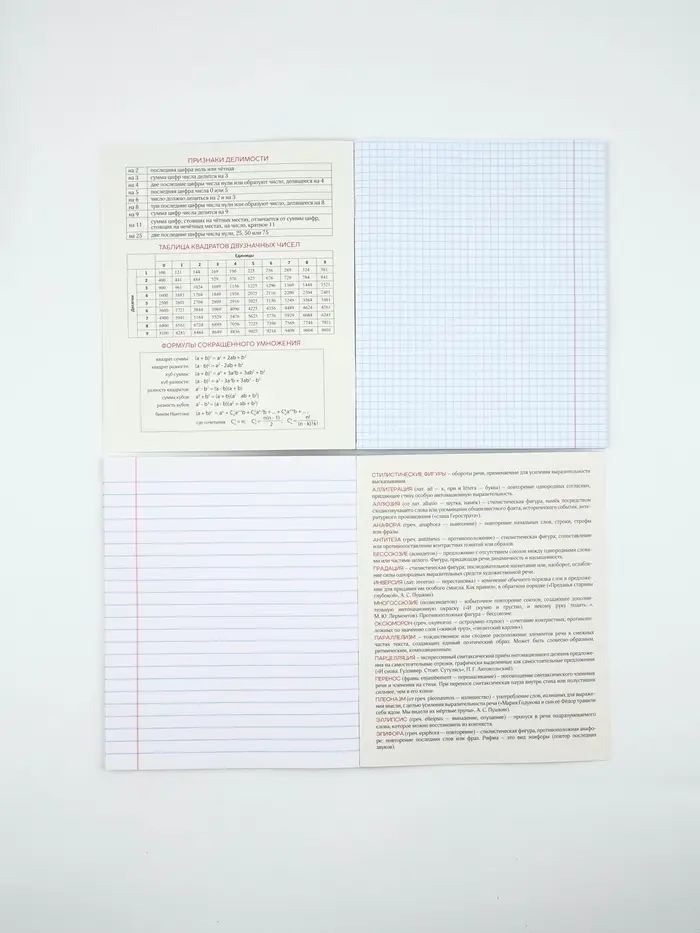 ПРИЗНАКИ ДЕЛИМОСТИ
на 2 последняя цифра ноль или чётная
на 3 сумма цифр делится на 3
на 4 две последние цифры числа нули или образуют число, делящееся на 4
на 5 последняя цифра числа 0 или 5
на 6 число должно делиться на 2 и на 3
на 8 три последние цифры числа нули или образуют число, делящееся на 8
на 9 сумма цифр числа делится на 9
на 11 сумма цифр, стоящих на чётных местах, отличается от суммы цифр,
стоящих на нечётных местах, на число, кратное 11
на 25 две последние цифры числа нули, 25, 50 или 75
ТАБЛИЦА КВАДРАТОВ ДВУЗНАЧНЫХ ЧИСЕЛ
Единицы
0 1 2 3 4 5 6 7 8 9
Десятки
1 100 121 144 169 196 225 256 289 324 361
2 400 441 484 529 576 625 676 729 784 841
3 900 961 1024 1089 1156 1225 1296 1369 1444 1521
4 1600 1681 1764 1849 1936 2025 2116 2209 2304 2401
5 2500 2601 2704 2809 2916 3025 3136 3249 3364 3481
6 3600 3721 3844 3969 4096 4225 4356 4489 4624 4761
7 4900 5041 5184 5329 5476 5625 5776 5929 6084 6241
8 6400 6561 6724 6889 7056 7225 7396 7569 7744 7921
9 8100 8281 8464 8649 8836 9025 9216 9409 9604 9801
ФОРМУЛЫ СОКРАЩЁННОГО УМНОЖЕНИЯ
квадрат суммы (a + b)² = a² + 2ab + b²
квадрат разности (a - b)² = a² - 2ab + b²
куб суммы (a + b)³ = a³ + 3a²b + 3ab² + b³
куб разности (a - b)³ = a³ - 3a²b + 3ab² - b³
разность квадратов a² - b² = (a - b)(a + b)
сумма кубов a³ + b³ = (a + b)(a² - ab + b²)
разность кубов a³ - b³ = (a - b)(a² + ab + b²)
бином Ньютона
где сочетания
СТИЛИСТИЧЕСКИЕ ФИГУРЫ – обороты речи, применяемые для усиления выразительности
высказывания.
АЛЛИТЕРАЦИЯ (лат. ad — к, при и littera — буква) – повторение однородных согласных,
придающее стиху особую интонационную выразительность.
АЛЛЮЗИЯ (от лат. allusio — шутка, намёк) – стилистическая фигура, намёк посредством
сходнозвучащего слова или упоминания общеизвестного факта, исторического события, лите-
ратурного произведения («слава Герострата»).
АНАФОРА (греч. anaphora — вынесение) – повторение начальных слов, строки, строфы
или фразы.
АНТИТЕЗА (греч. antithesis — противоположение) – стилистическая фигура; сопоставление
или противопоставление контрастных понятий или образов.
БЕССОЮЗИЕ (асиндетон) – предложение с отсутствием союзов между однородными слова-
ми или частями целого. Фигура, придающая речи динамичность и насыщенность.
ГРАДАЦИЯ – стилистическая фигура, последовательное нагнетание или, наоборот, ослабле-
ние силы однородных выразительных средств художественной речи.
ИНВЕРСИЯ (лат. inversio — перестановка) – изменение обычного порядка слов в предложе-
нии для придания им особого смысла. Как правило, в обратном порядке («Преданья старины
глубокой», А. С. Пушкин).
МНОГОСОЮЗИЕ (полисиндетон) – избыточное повторение союзов, создающее дополни-
тельную интонационную окраску («И скучно и грустно, и некому руку подать...»,
М. Ю. Лермонтов). Противоположная фигура – бессоюзие.
ОКСЮМОРОН (греч. oxymoron — остроумно-глупое) – сочетание контрастных, противопо-
ложных по значению слов («живой труп», «гигантский карлик»).
ПАРАЛЛЕЛИЗМ – тождественное или сходное расположение элементов речи в смежных
частях текста, создающих единый поэтический образ. Может быть словесно-образным,
ритмическим, композиционным.
ПАРЦЕЛЛЯЦИЯ – экспрессивный синтаксический приём интонационного деления предложе-
ния на самостоятельные отрезки, графически выделенные как самостоятельные предложения
(«И снова. Гулливер. Стоит. Сутулясь», П. Г. Антокольский).
ПЕРЕНОС (франц. enjambement — перешагивание) – несовпадение синтаксического членения
речи и членения на стихи. При переносе синтаксическая пауза внутри стиха или полустишия
сильнее, чем в его конце.
ПЛЕОНАЗМ (от греч. pleonasmos — излишество) – употребление слов, излишних для выраже-
ния мысли, с целью усиления выразительности речи («Мария Годунова и сын её Фёдор травили
себя ядом. Мы видели их мёртвые трупы», А. С. Пушкин).
ЭЛЛИПСИС (греч. elleipsis — выпадение, опущение) – пропуск в речи подразумеваемого
слова, которое можно восстановить из контекста.
ЭПИФОРА (греч. epiphora — повторение) – стилистическая фигура, противоположная анафо-
ре: повторение последних слов или фраз. Рифма – это вид эпифоры (повтор последних
звуков).